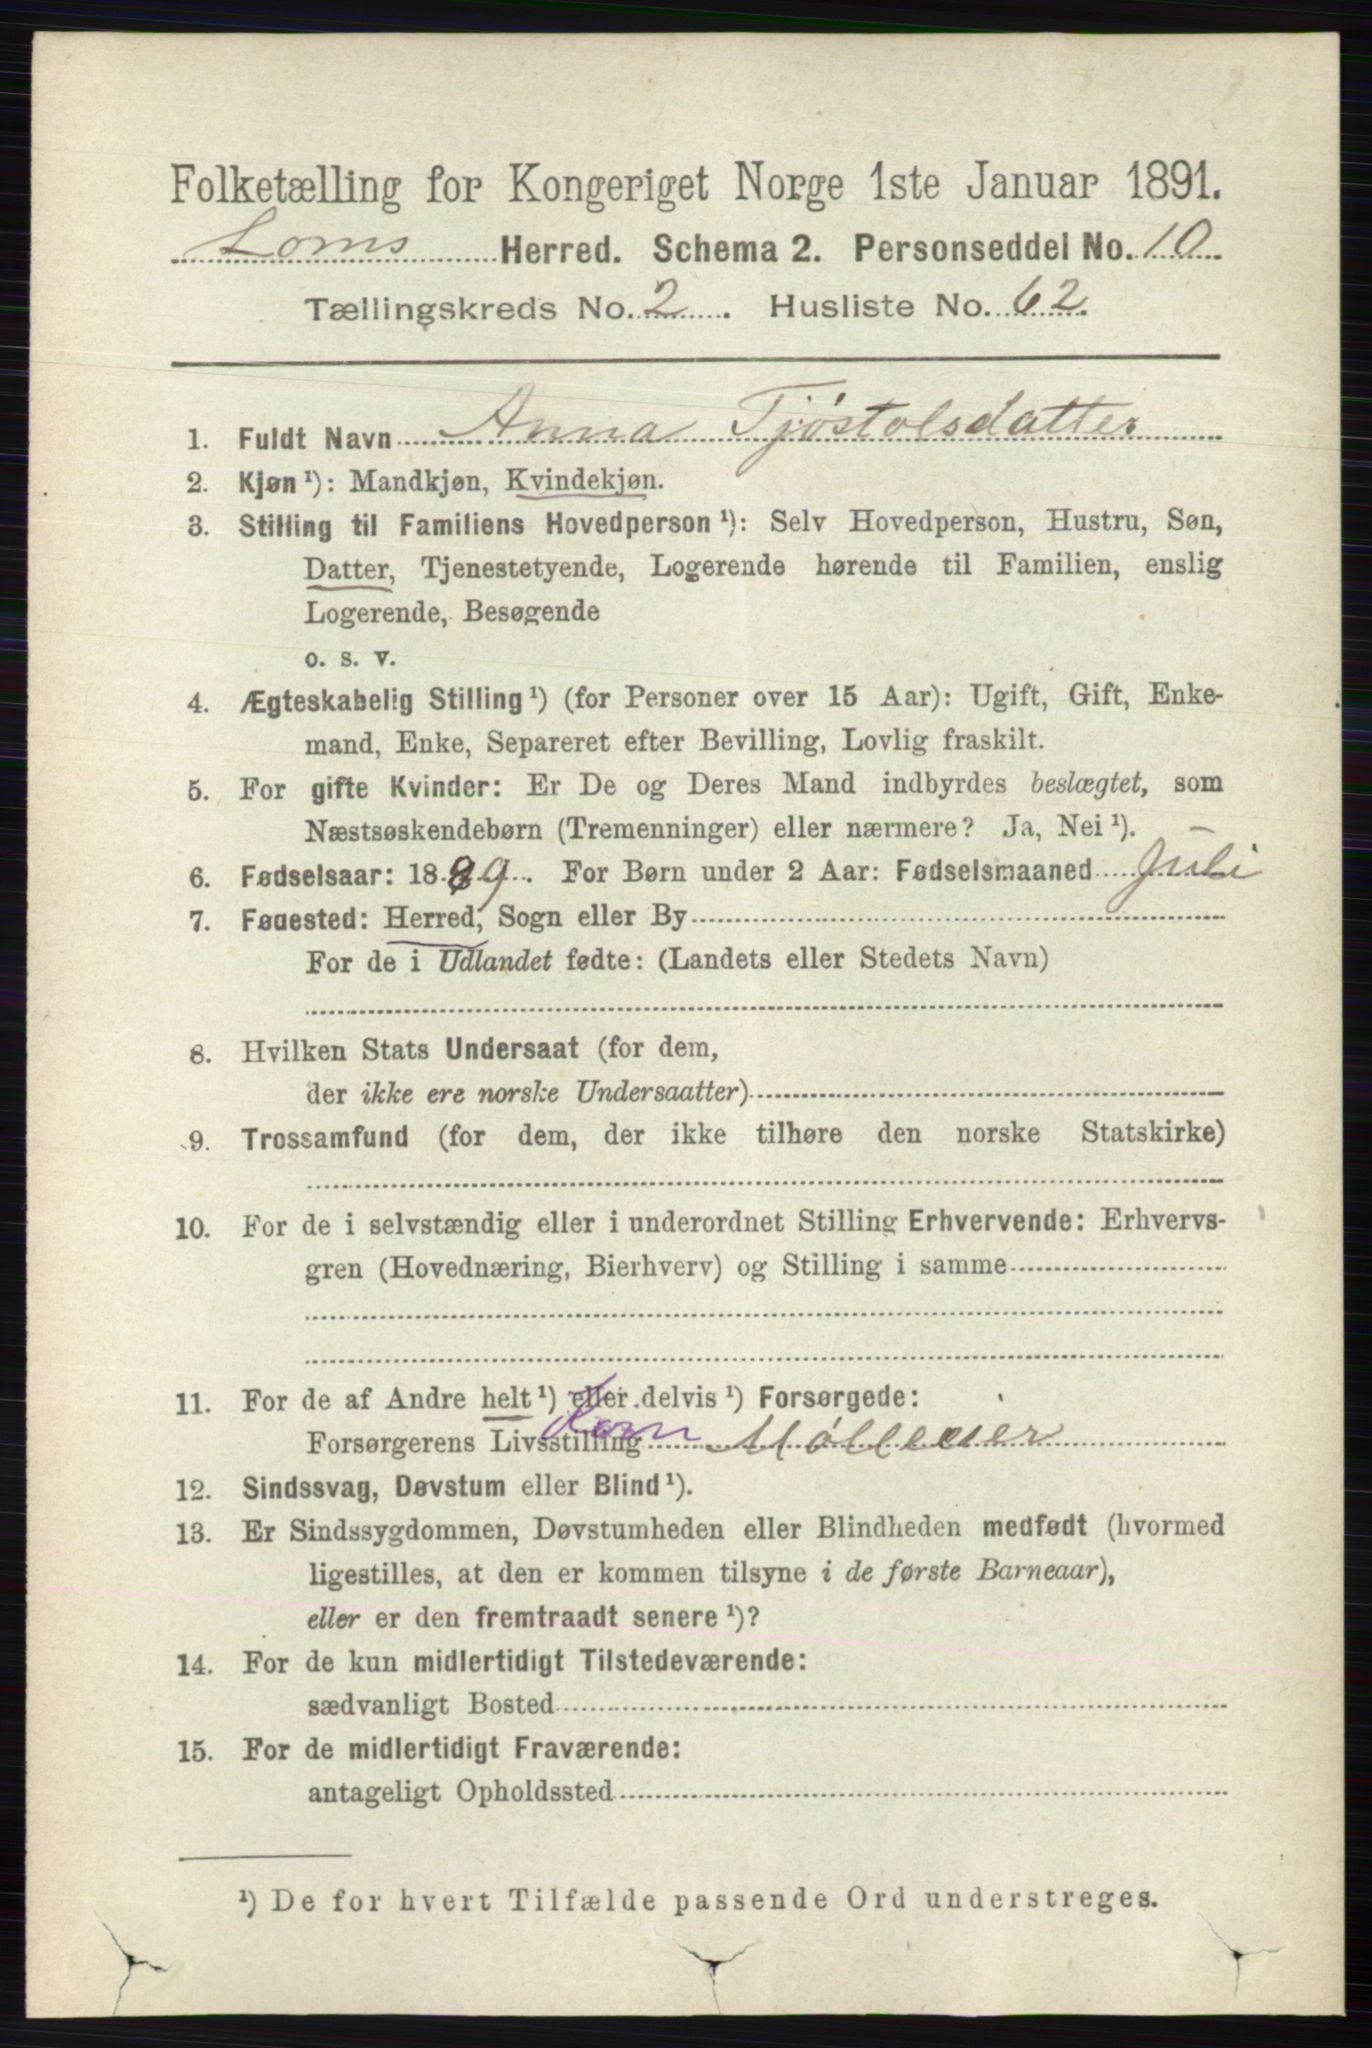 Folketælling for Kongeriget Norge 1ste Januar 1891.
Loms Herred. Schema 2. Personseddel No. 10
Tællingskreds No. 2. Husliste No. 62.
1. Fuldt Navn Anna Tjøstolsdatter
2. Kjøn ¹): Mandkjøn, Kvindekjøn.
3. Stilling til Familiens Hovedperson ¹): Selv Hovedperson, Hustru, Søn,
Datter, Tjenestetyende, Logerende hørende til Familien, enslig
Logerende, Besøgende
o. s. v.
4. Ægteskabelig Stilling ¹) (for Personer over 15 Aar): Ugift, Gift, Enke-
mand, Enke, Separeret efter Bevilling, Lovlig fraskilt.
5. For gifte Kvinder: Er De og Deres Mand indbyrdes beslægtet, som
Næstsøskendebørn (Tremenninger) eller nærmere? Ja, Nei ¹).
6. Fødselsaar: 1889. For Børn under 2 Aar: Fødselsmaaned Juli
7. Føuested: Herred, Sogn eller By
For de i Udlandet fødte: (Landets eller Stedets Navn)
8. Hvilken Stats Undersaat (for dem,
der ikke ere norske Undersaatter)
9. Trossamfund (for dem, der ikke tilhøre den norske Statskirke)
10. For de i selvstændig eller i underordnet Stilling Erhvervende: Erhvervs-
gren (Hovednæring, Bierhverv) og Stilling i samme
11. For de af Andre helt ¹) eller delvis ¹) Forsørgede:
Forsørgerens Livsstilling Korn Mølleeier
12. Sindssvag, Døvstum eller Blind ¹).
13. Er Sindssygdommen, Døvstumheden eller Blindheden medfødt (hvormed
ligestilles, at den er kommen tilsyne i de første Barneaar),
eller er den fremtraadt senere ¹)?
14. For de kun midlertidigt Tilstedeværende:
sædvanligt Bosted
15. For de midlertidigt Fraværende:
antageligt Opholdssted
¹) De for hvert Tilfælde passende Ord understreges.